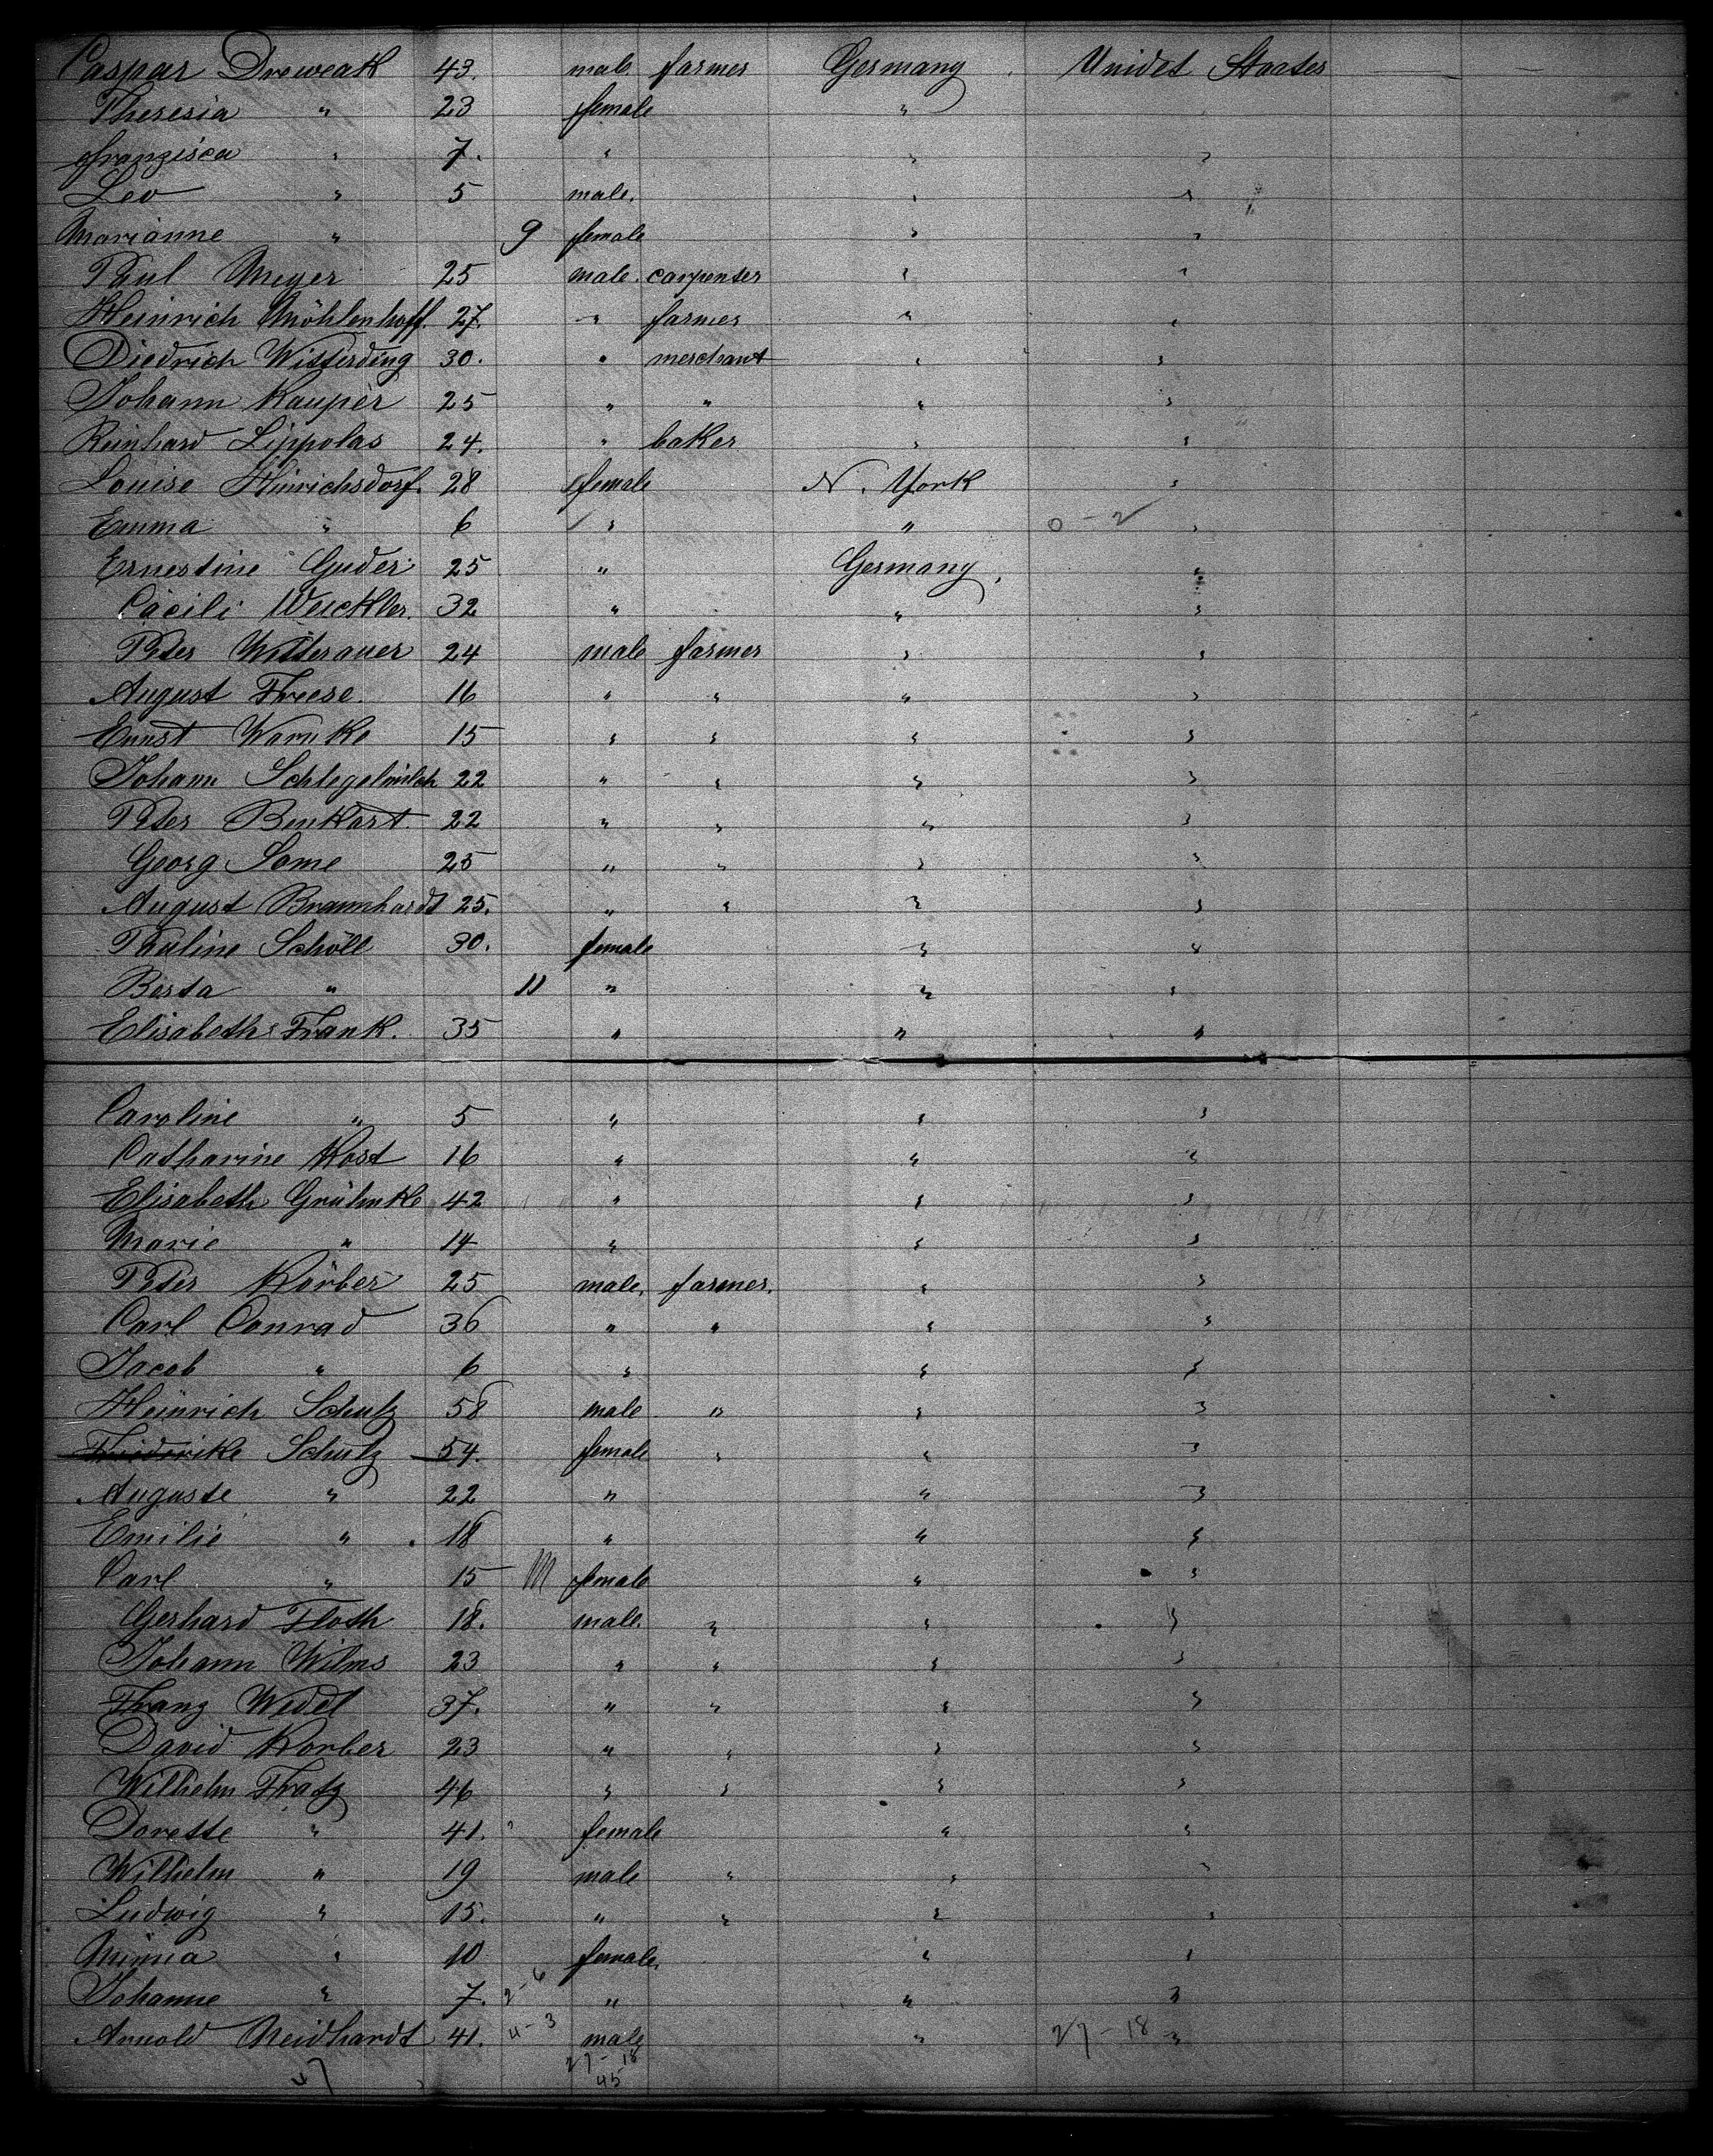 Caspar Dreweak 43. male farmer Germany. Unidet Staates
Theresia " 23 female "
Franzisca " 7. " " "
Leo " 5 male. " "
Marianne " 9 female " "
Paul Meyer 25 male. carpenter " "
Heinrich Möhlenhoff. 27. " farmer " "
Diedrich Witterding 30. " merchant " "
Johann Kauper 25 " " " "
Reinhard Lippolas 24. " baker " "
Louise Hinrichsdorf. 28 female N. York "
Emma " 6 " " 0 - 2 "
Ernestine Guder 25 " Germany. "
Cäcili Weickler. 32 " " "
Peter Witterauer 24 male farmer " "
August Friese. 16 " " " "
Ernst Warnke 15 " " " "
Johann Schlegelmilch 22 " " " "
Peter Benkart 22 " " " "
Georg Some 25 " " " "
August Braunhardt 25. " " " "
Pauline Schöll 30. female " "
Berta " 11 " " "
Elisabeth Frank. 35 " " "
Caroline " 5 " " "
Catharine Kost 16 " " "
Elisabeth Grühmke 42 " " "
Marie " 14 " " "
Peter Körber 25 male. farmer. " "
Carl Conrad 36 " " " "
Jacob " 6 " " "
Heinrich Schulz 58 male " " "
Friederike Schulz 54. female " " "
Auguste " 22 " " "
Emilie " 18 " " "
Carl " 15 M female " "
Gerhard Floth 18. male. " " "
Johann Wilms 23 " " " "
Franz Wedel 37. " " " "
David Korber 23 " " " "
Wilhelm Fratz 46 " " " "
Dorette " 41. female " "
Wilhelm " 19 male " " "
Ludwig " 15. " " " "
Minna " 10 female. " "
Johanne " 7. 2-6 " " "
Arnold Neidhardt 41. 4-3 male " 27-18 "
47 27-18
45